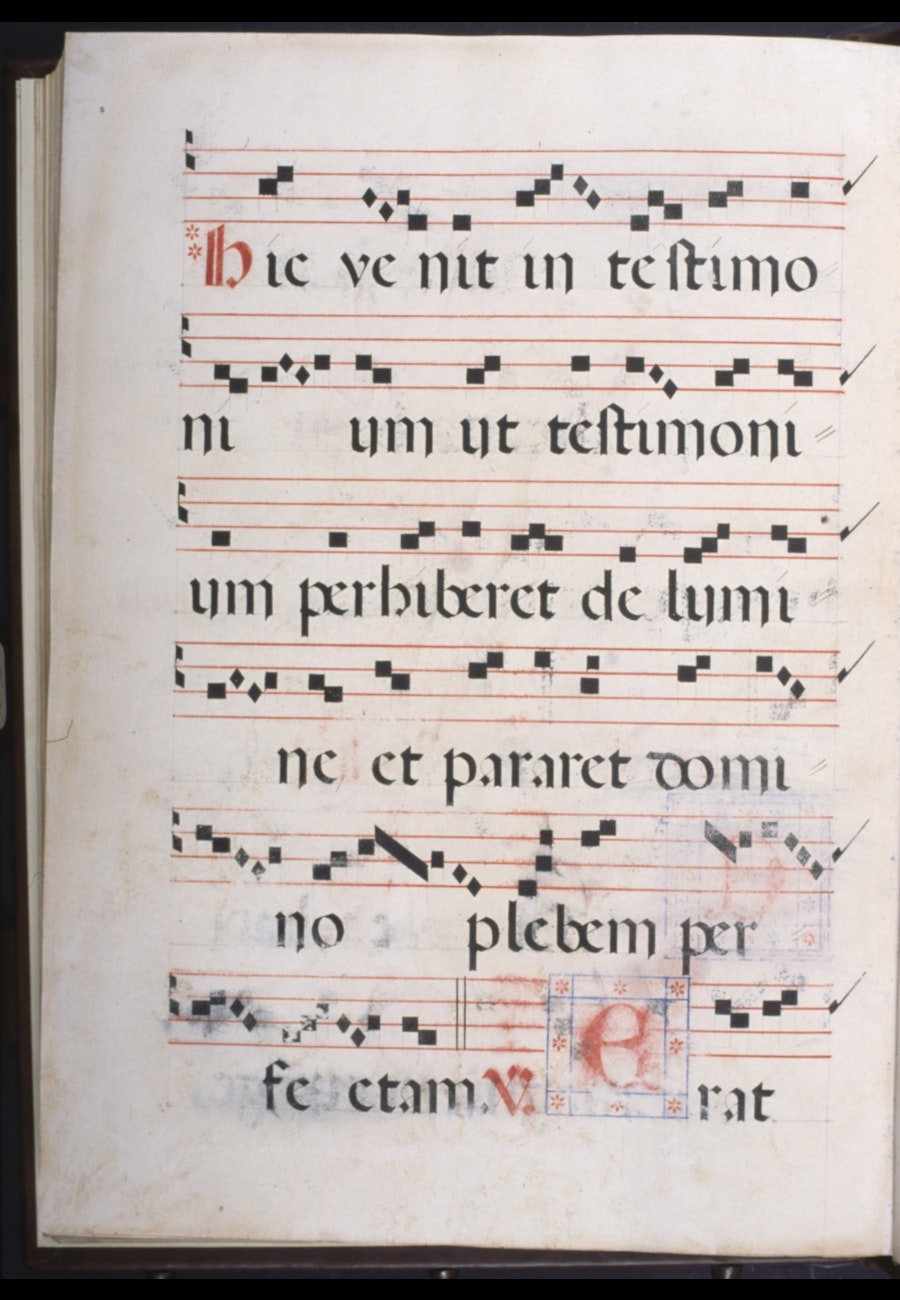 Hic ve nit in testimo
ni um ut testimoni
um perhiberet de lumi
ne et pararet domi
no plebem per
fe ctam. V. Erat